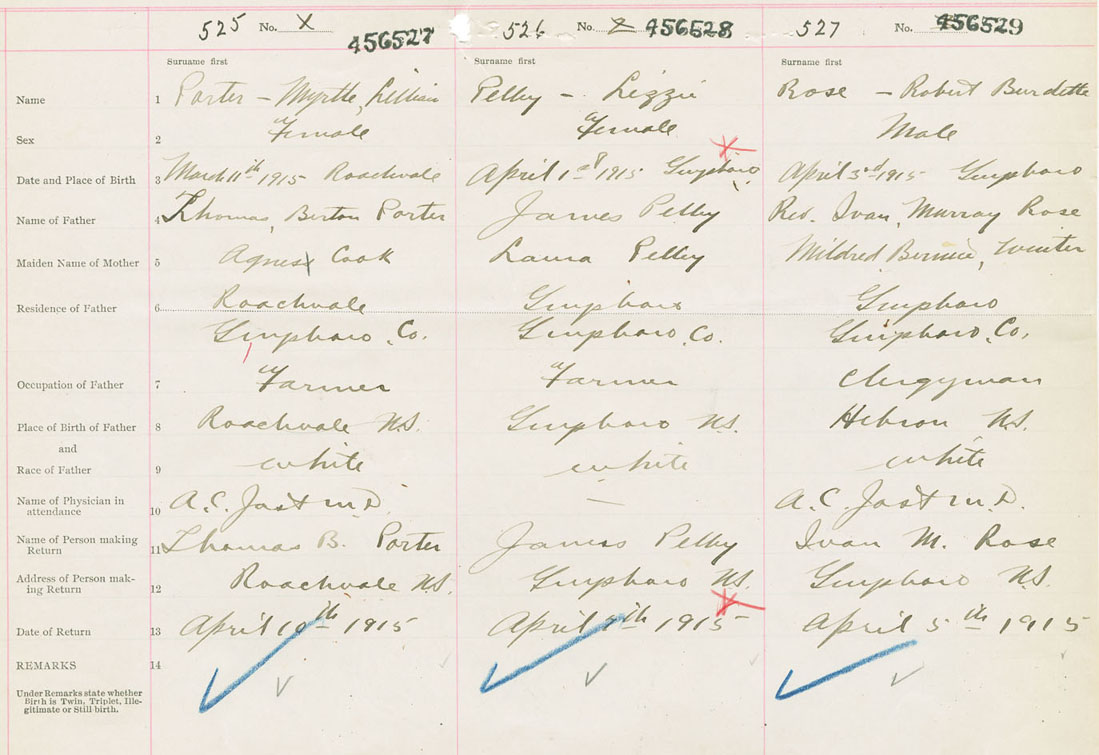 525 No. X 456527 526 No. 2 456528 527 No. 456529
Surname first Surname first Surname first
Name 1 Porter - Myrtle, Lillian Pelley - Lizzie Rose - Robert Burdette
Sex 2 Female Female Male
Date and Place of Birth 3 March 11th 1915 Roachvale April 1st 1915 Guysboro April 3rd 1915 Guysboro
Name of Father 4 Thomas, Burton Porter James Pelley Rev. Ivan, Murray Rose
Maiden Name of Mother 5 Agnes Cook Laura Pelley Mildred Bernice, Winter
Residence of Father 6 Roachvale Guysboro Guysboro
Guysboro Co. Guysboro Co. Guysboro Co.
Occupation of Father 7 Farmer Farmer Clergyman
Place of Birth of Father 8 Roachvale N.S. Guysboro N.S. Hebron N.S.
and
Race of Father 9 white white white
Name of Physician in
attendance 10 A.C. Jost M.D. — A.C. Jost M.D.
Name of Person making
Return 11 Thomas B. Porter James Pelley Ivan M. Rose
Address of Person mak-
ing Return 12 Roachvale N.S. Guysboro N.S. Guysboro N.S.
Date of Return 13 April 10th 1915 April th 1915 April 5th 1915
REMARKS 14
Under Remarks state whether
Birth is Twin, Triplet, Ille-
gitimate or Still-birth.